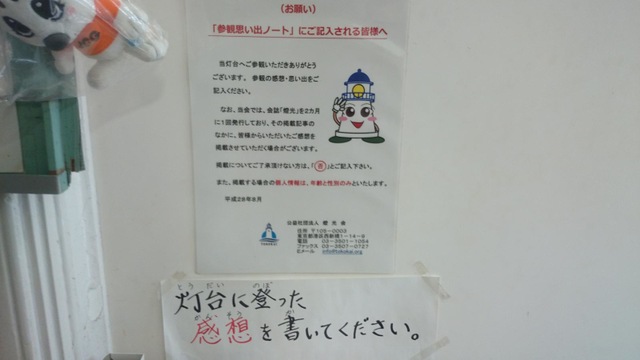 (お願い)
「参観思い出ノート」にご記入される皆様へ
当灯台へご参観いただきありがとう
ございます。参観の感想・思い出をご
記入ください。
なお、当会では、会誌「燈光」を2カ月
に1回発行しており、その掲載記事の
なかに、皆様からいただいたご感想を
掲載させていただく場合がございます。
掲載についてご了承頂けない方は、「否」とご記入下さい。
また、掲載する場合の個人情報は、年齢と性別のみといたします。
平成28年8月
公益社団法人 燈光会
住所 〒105-0003
東京都港区西新橋1-14-9
電話 03-3501-1054
ファックス 03-3507-0727
Eメール info@tokokai.org
TOKOKAI
とうだい のぼ
灯台に登った
かんそう か
感想を書いてください。